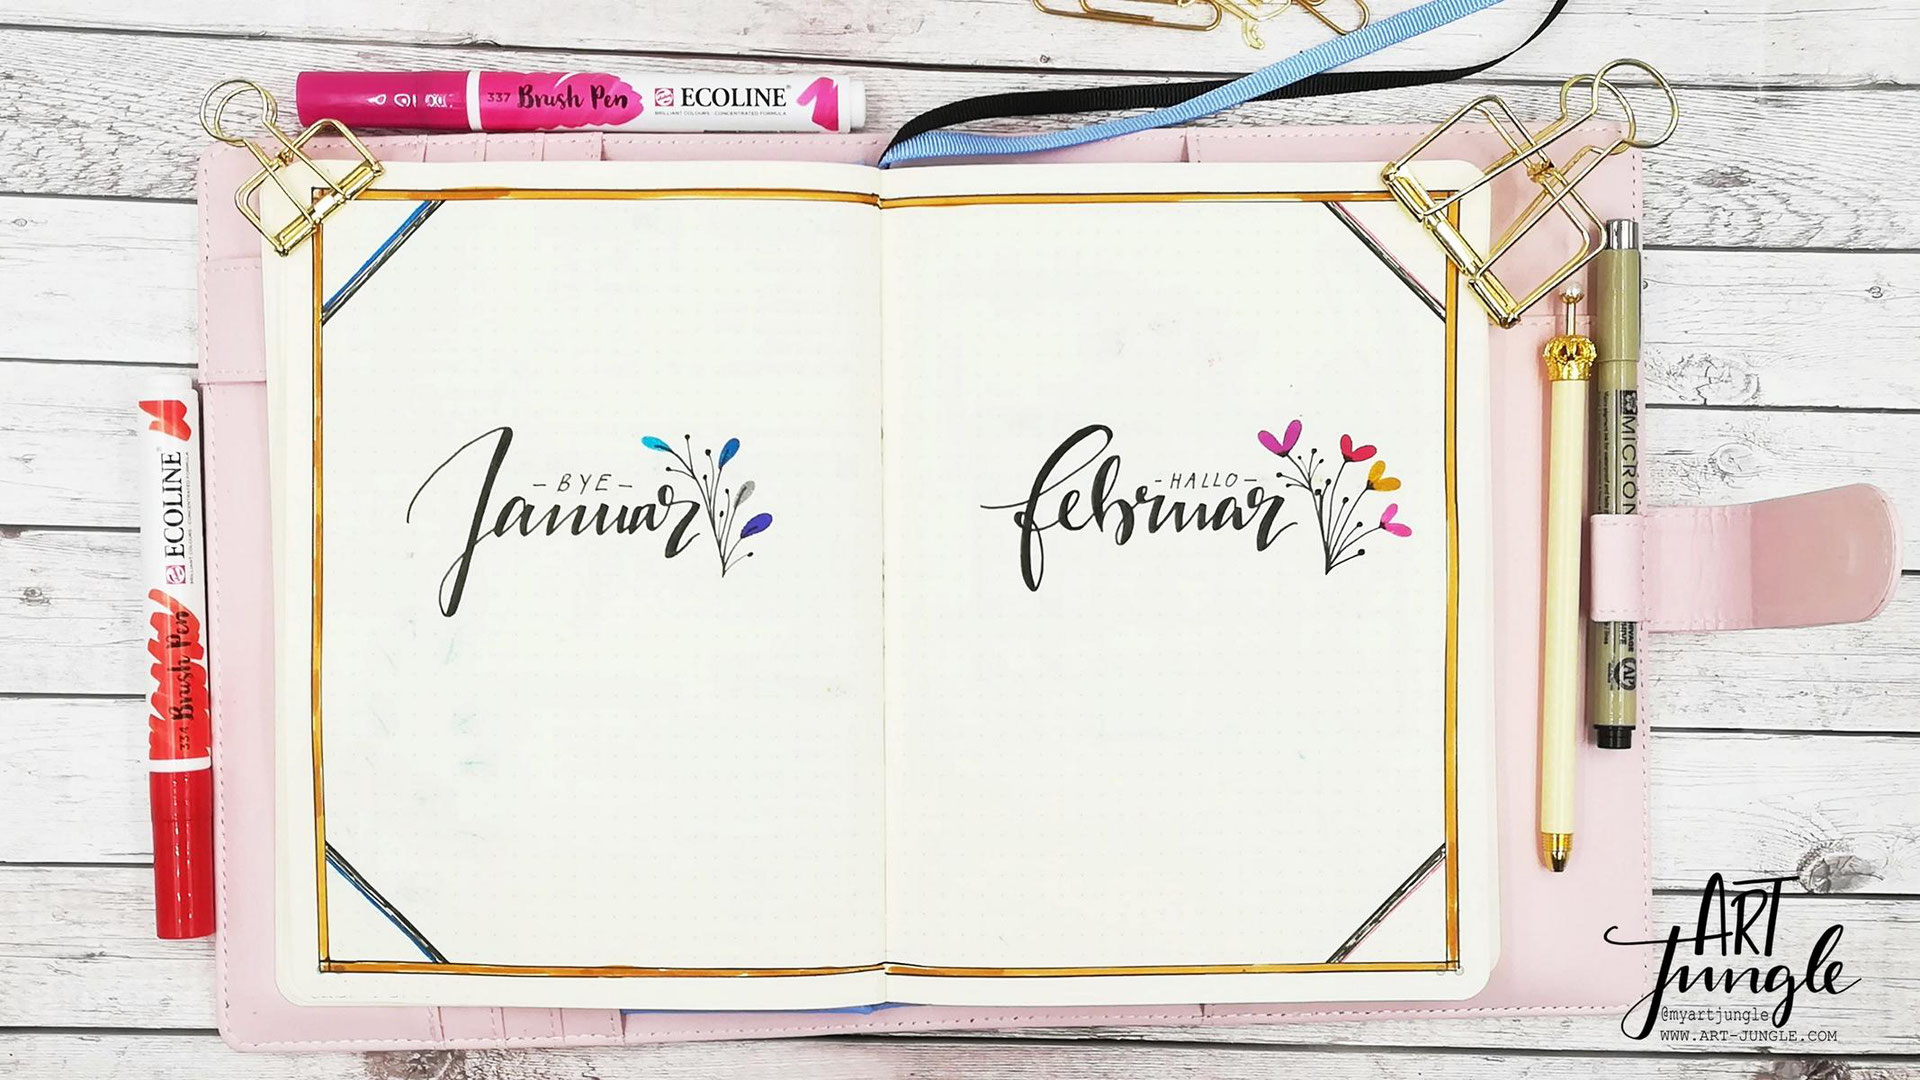 337 Brush Pen ECOLINE
BRILLIANT COLOURS · CONCENTRATED FORMULA
- BYE -
Januar
- HALLO -
februar
334 Brush Pen ECOLINE
MICRON
ART
Jungle
@myartjungle
WWW.ART-JUNGLE.COM